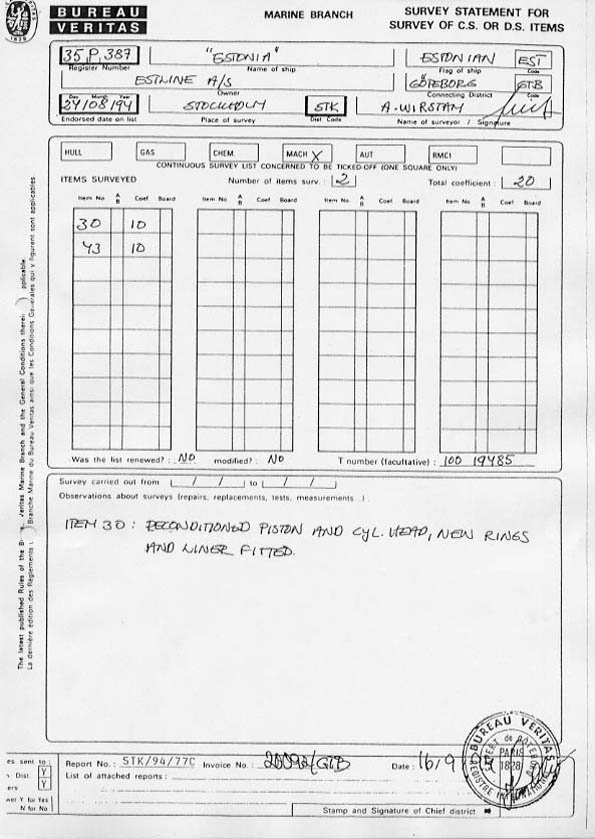 BUREAU
VERITAS
1828
MARINE BRANCH
SURVEY STATEMENT FOR
SURVEY OF C.S. OR D.S. ITEMS
35 P 387 "ESTONIA" ESTONIAN EST
Register Number Name of ship Flag of ship Code
ESTLINE A/S GÖTEBORG GTB
Owner Connecting District Code
Day Month Year
24/08/94 STOCKHOLM STK A. WIRSTAM
Endorsed date on list Place of survey Dist Code Name of surveyor / Signature
HULL GAS CHEM. MACH X AUT RMC1
CONTINUOUS SURVEY LIST CONCERNED TO BE TICKED-OFF (ONE SQUARE ONLY)
ITEMS SURVEYED Number of items surv. : 2 Total coefficient : 20
Item No A B Coef Board Item No A B Coef Board Item No A B Coef Board Item No A B Coef Board
30 10
43 10
Was the list renewed? : NO modified? : NO T number (facultative) : 100 19485
Survey carried out from / / to / /
Observations about surveys (repairs, replacements, tests, measurements ..)
ITEM 30 : RECONDITIONED PISTON AND CYL. HEAD, NEW RINGS
AND LINER FITTED.
The latest published Rules of the Veritas Marine Branch and the General Conditions therei applicable.
La dernière édition des Règlements Branche Marine du Bureau Veritas ainsi que les Conditions Générales qui y figurent sont applicables.
es sent to :
Dist. Y
ers Y
wer Y for Yes
N for No
Report No. : STK/94/77C Invoice No. : Date : 16/9
List of attached reports :
Stamp and Signature of Chief district
BUREAU VERITAS
PARIS
1828